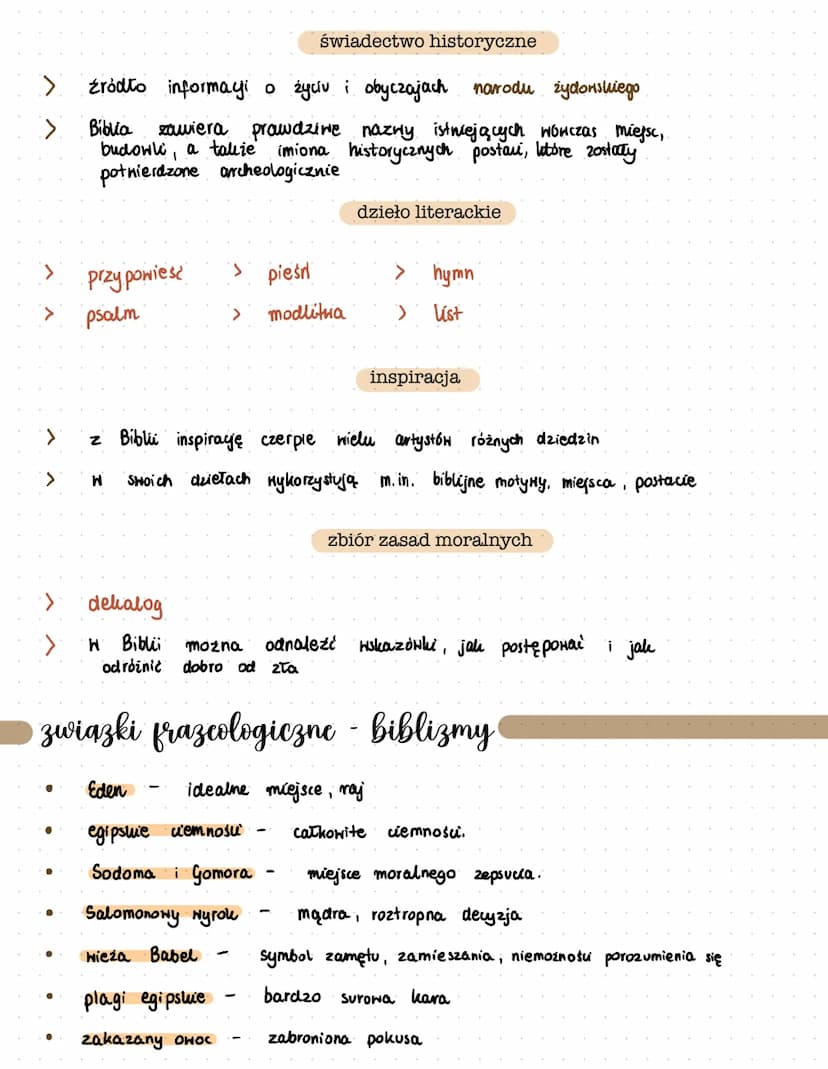 świadectwo historyczne
> źródło informacji o życiu i obyczajach narodu żydowskiego
> Biblia zawiera prawdziwe nazwy istniejących wówczas miejsc,
budowli, a także imiona historycznych postaci, które zostały
potwierdzone archeologicznie
dzieło literackie
> przypowieść > pieśń > hymn
> psalm > modlitwa > list
inspiracja
> z Biblii inspirację czerpie wielu artystów różnych dziedzin
> w swoich dziełach wykorzystują m.in. biblijne motywy, miejsca, postacie
zbiór zasad moralnych
> dekalog
> w Biblii można odnaleźć wskazówki, jak postępować i jak
odróżnić dobro od zła
związki frazeologiczne - biblizmy
• Eden - idealne miejsce, raj
• egipskie ciemności - całkowite ciemności.
• Sodoma i Gomora - miejsce moralnego zepsucia.
• Salomonowy wyrok - mądra, roztropna decyzja
• wieża Babel - symbol zamętu, zamieszania, niemożności porozumienia się
• plagi egipskie - bardzo surowa kara
• zakazany owoc - zabroniona pokusa